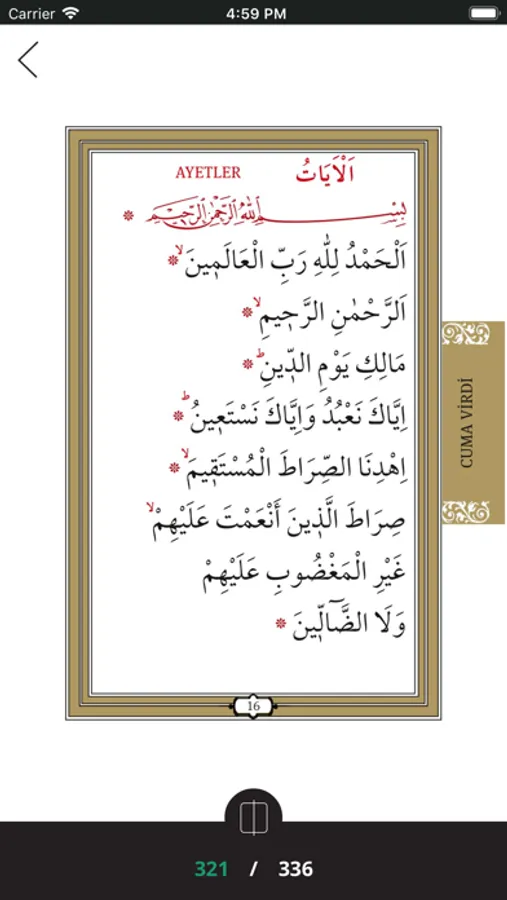 Carrier 4:59 PM
AYETLER اَلْاٰيَاتُ
بِسْــــــمِ اللهِ الرَّحْمٰنِ الرَّحِيمِ ❁
اَلْحَمْدُ لِلّٰهِ رَبِّ الْعَالَم۪ينَۙ ❁
اَلرَّحْمٰنِ الرَّح۪يمِۙ ❁
مَالِكِ يَوْمِ الدّ۪ينِۜ ❁
اِيَّاكَ نَعْبُدُ وَاِيَّاكَ نَسْتَع۪ينُۜ ❁
اِهْدِنَا الصِّرَاطَ الْمُسْتَق۪يمَۙ ❁
صِرَاطَ الَّذ۪ينَ أَنْعَمْتَ عَلَيْهِمْۙ
غَيْرِ الْمَغْضُوبِ عَلَيْهِمْ
وَلَا الضَّٓالّ۪ينَ ❁
CUMA VİRDİ
16
321 / 336